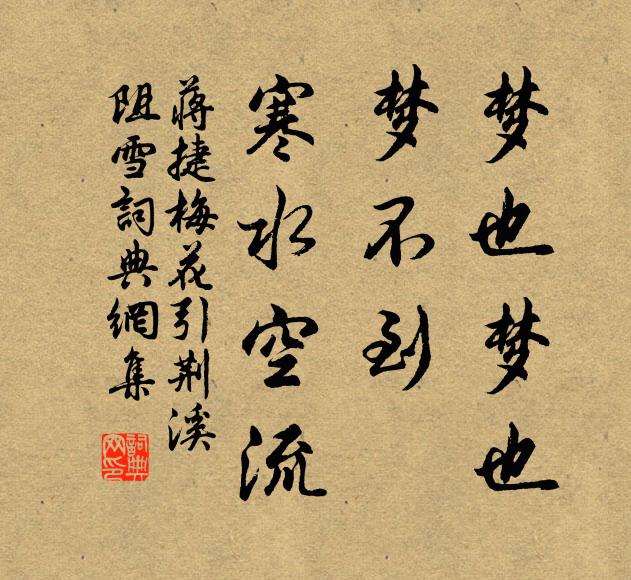 梦也梦也
梦不到
寒水空流
蒋捷梅花引荆溪
阻雪詞典網集
詞典
网印